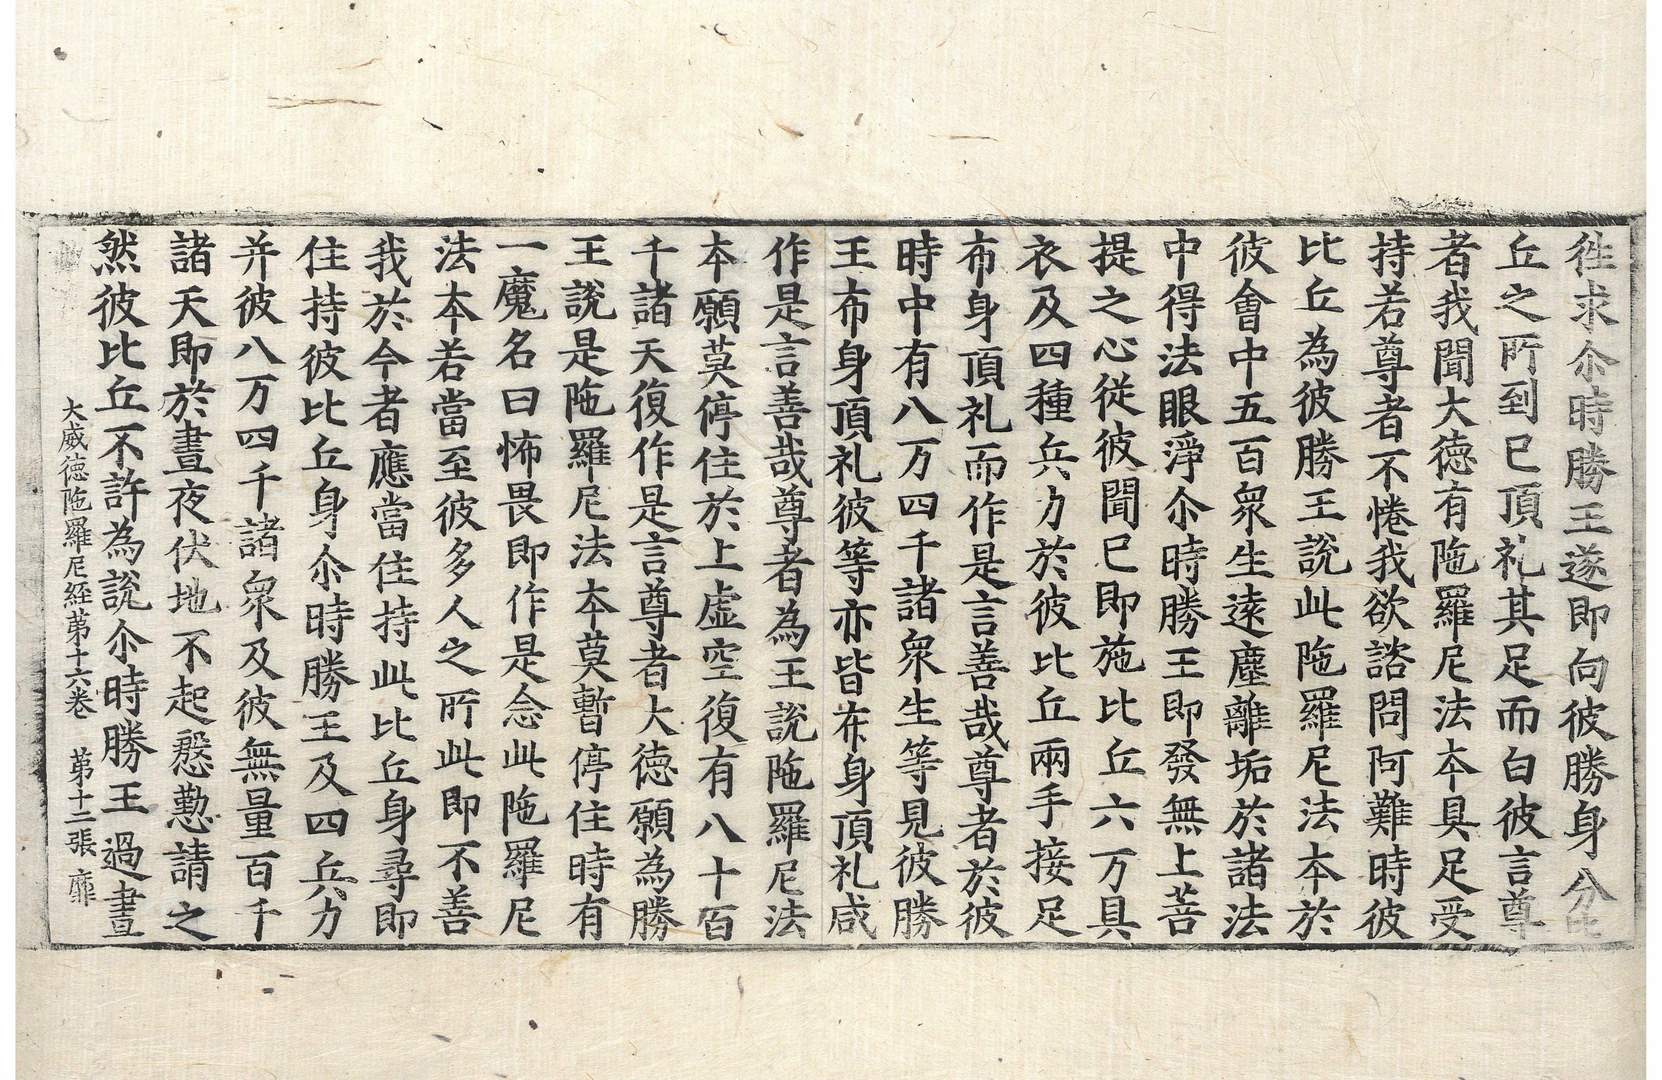 徃求尒時勝王遂即向彼勝身分比
丘之所到已頂礼其足而白彼言尊
者我聞大德有陁羅尼法本具足受
持若尊者不惓我欲諮問阿難時彼
比丘為彼勝王說此陁羅尼法本於
彼會中五百衆生遠塵離垢於諸法
中得法眼淨尒時勝王即發無上菩
提之心從彼聞已即施比丘六万具
衣及四種兵力於彼比丘兩手接足
布身頂礼而作是言善哉尊者於彼
時中有八万四千諸衆生等見彼勝
王布身頂礼彼等亦皆布身頂礼咸
作是言善哉尊者為王說陁羅尼法
本願莫停住於上虛空復有八十百
千諸天復作是言尊者大德願為勝
王說是陁羅尼法本莫暫停住時有
一魔名曰怖畏即作是念此陁羅尼
法本若當至彼多人之所此即不善
我於今者應當住持此比丘身尋即
住持彼比丘身尒時勝王及四兵力
并彼八万四千諸衆及彼無量百千
諸天即於晝夜伏地不起慇懃請之
然彼比丘不許為說尒時勝王過晝
大威德陁羅尼經第十六卷 第十二張 靡